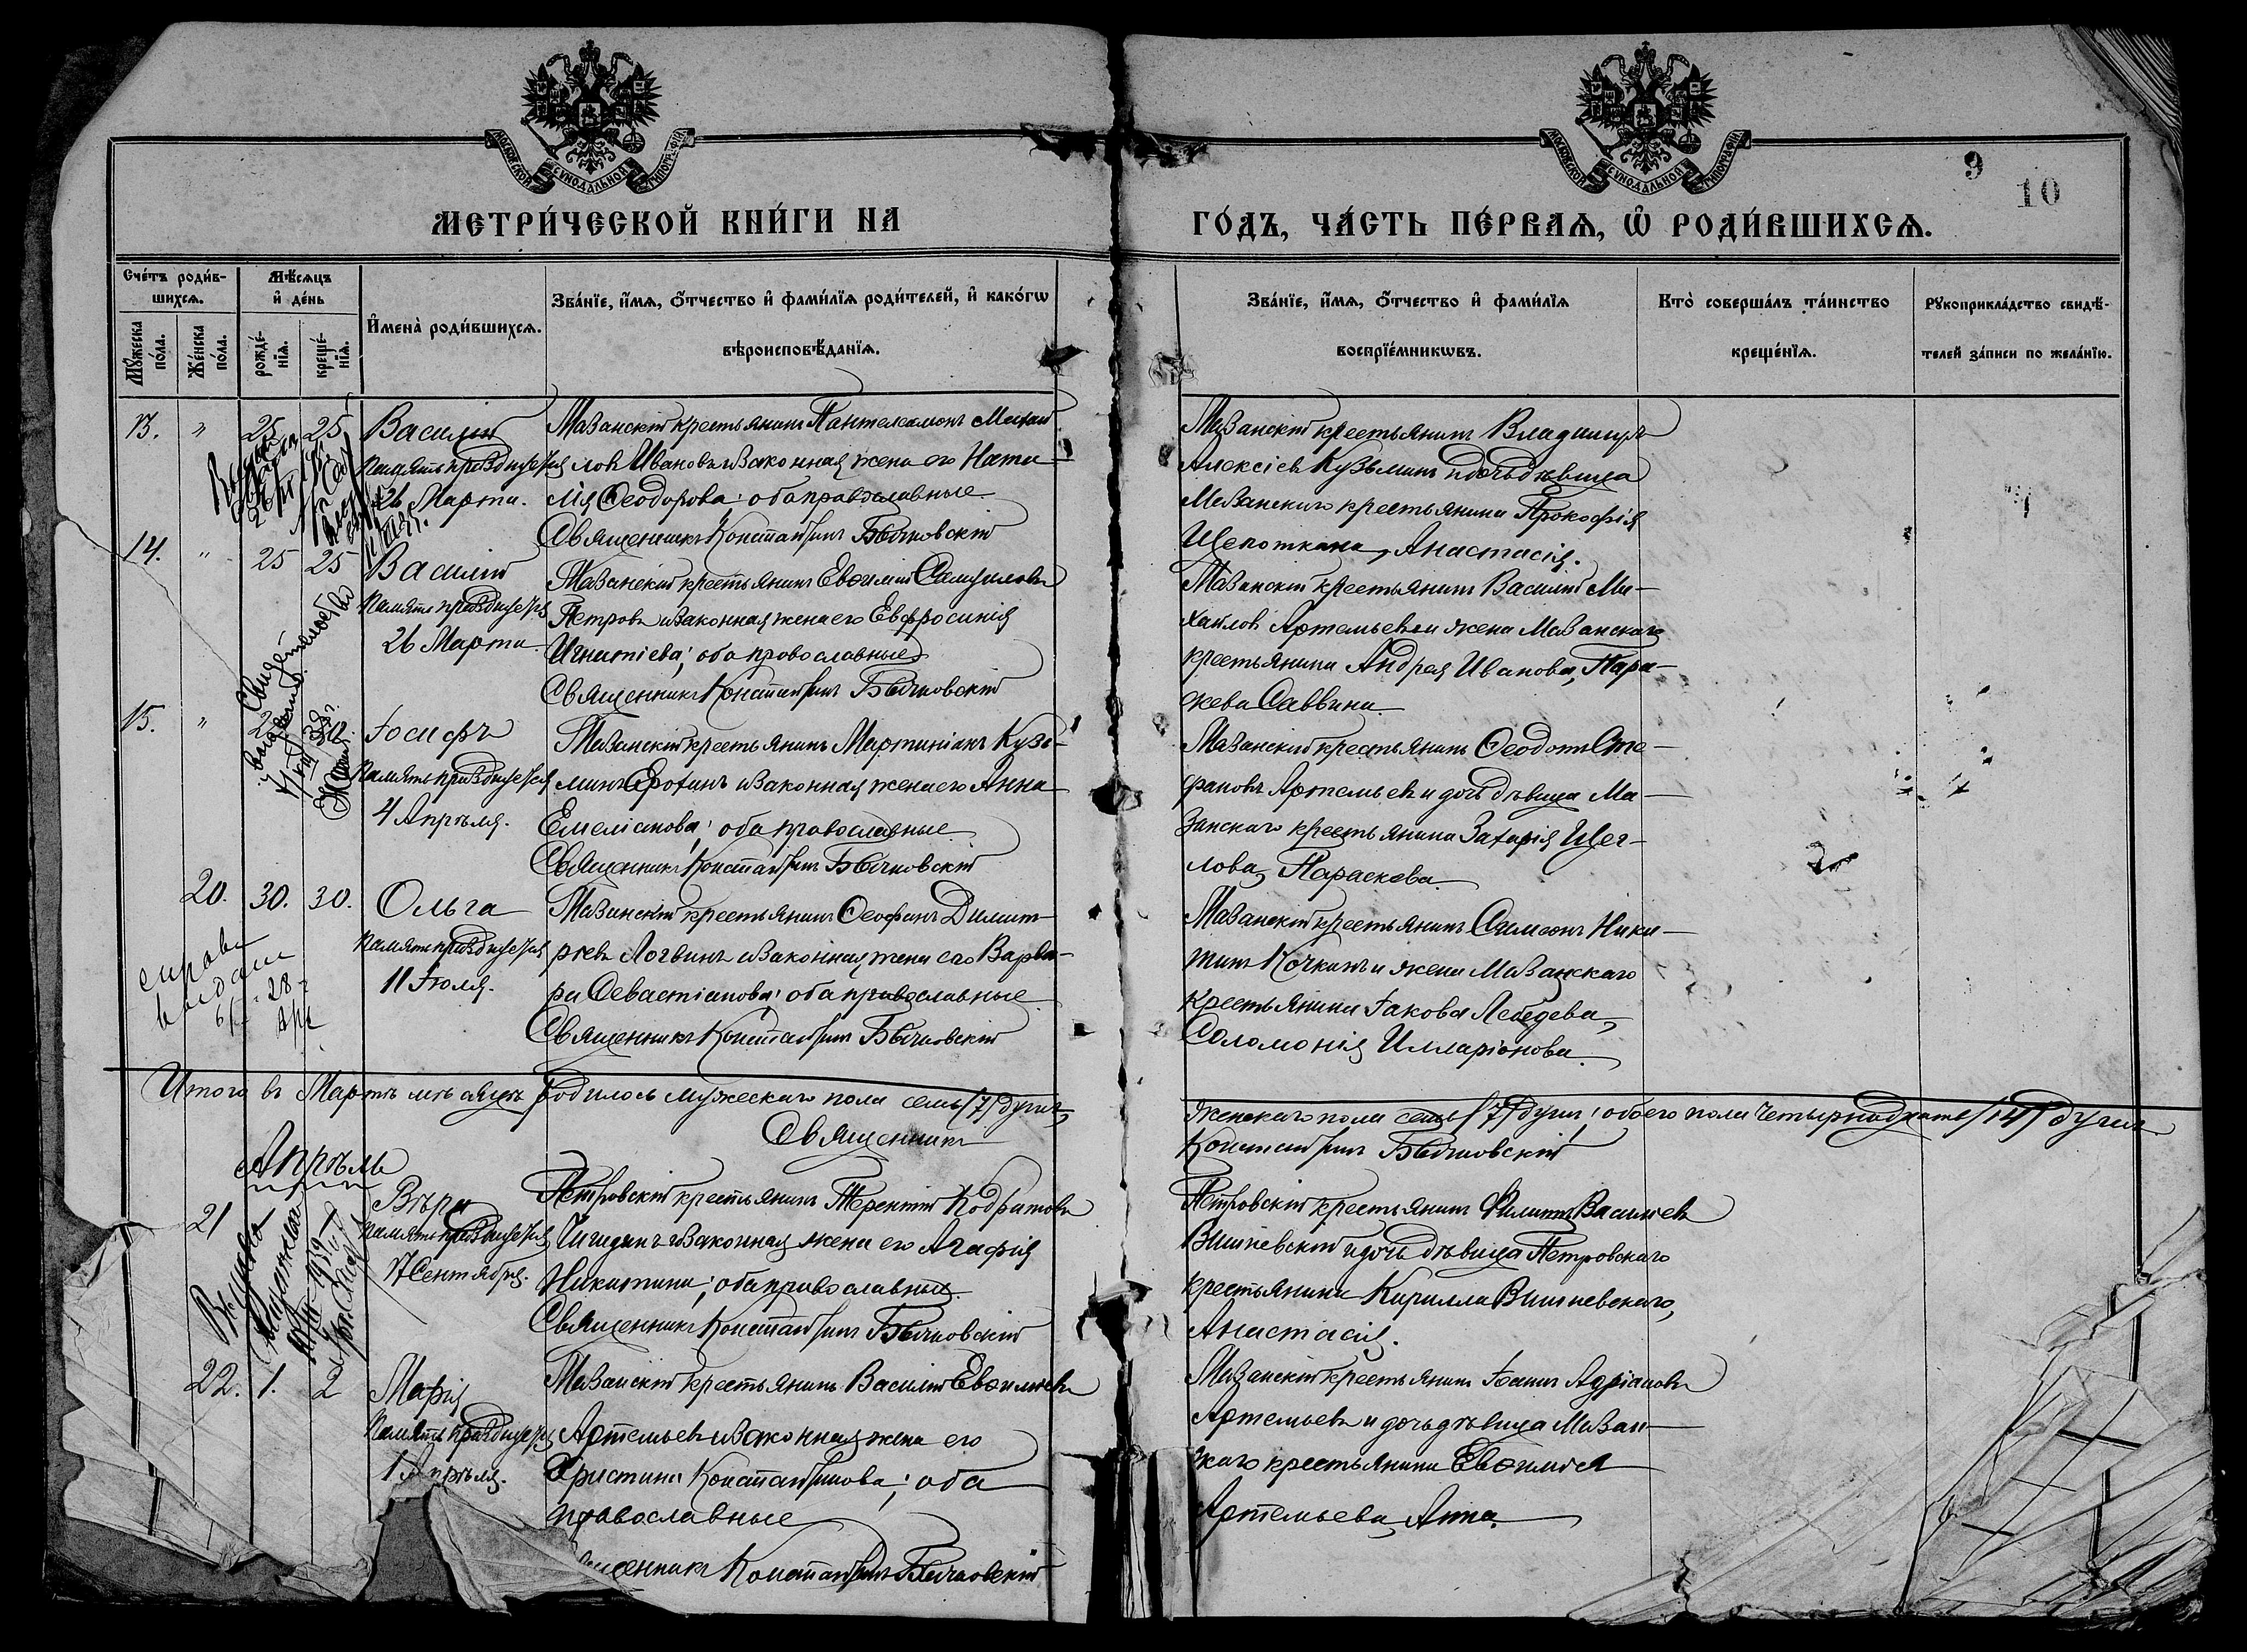 МОСКОВСКОЙ СѴНОДАЛЬНОЙ ТИПОГРАФІИ
МОСКОВСКОЙ СѴНОДАЛЬНОЙ ТИПОГРАФІИ
9
10
МЕТРИ́ЧЕСКОЙ КНИ́ГИ НА
ГО́ДЪ, ЧА́СТЬ ПЕ́РВАѦ, Ѡ҆ РОДИ́ВШИХСѦ.
Сче́тъ роди́в-
шихсѧ.
Мꙋжеска
по́ла.
Же́нска
по́ла.
Мѣ́сѧцъ
и҆ де́нь
рожде́-
нїѧ.
креще́-
нїѧ.
И҆мена̀ роди́вшихсѧ.
Зва́нїе, и҆́мѧ, ѻ҆́тчество и҆ фами́лїѧ роди́телей, и҆ како́гѡ
вѣроисповѣ́данїѧ.
Зва́нїе, и҆́мѧ, ѻ҆́тчество и҆ фами́лїѧ
воспрїе́мникѡвъ.
Кто̀ соверша́лъ та́инство
креще́нїѧ.
Рꙋкоприкла́дство свидѣ́-
телей за́писи по жела́нїю.
13. " 25 25 Василій
Память празднуется
26 Марта.
Мазанскій крестьянинъ Пантелеимонъ Михаи
ловъ Ивановъ и законная жена его Ната
лія Ѳеодорова; оба православные
Священникъ Константинъ Бычковскій
Мазанскій крестьянинъ Владимиръ
Алексіевъ Кузьминъ и дочь дѣвица
Мазанскаго крестьянина Прокофія
Щепоткина, Анастасія.
14. " 25 25 Василій
Память празднуется
26 Марта
Мазанскій крестьянинъ Евѳимій Самуиловъ
Петровъ и законная жена его Евфросинія
Игнатіева; оба православные
Священникъ Константинъ Бычковскій
Мазанскій крестьянинъ Василій Ми-
хайловъ Артемьевъ и жена Мазанскаго
крестьянина Андрея Иванова, Пара-
скева Саввина.
Свидѣтельство
15. " Іосифъ
Память празднуется
4 Апрѣля.
Мазанскій крестьянинъ Мартиніанъ Кузь-
минъ Ерохинъ и законная жена его Анна
Емеліанова; оба православные
Священникъ Константинъ Бычковскій
Мазанскій крестьянинъ Ѳеодотъ Сте-
фановъ Артемьевъ и дочь дѣвица Ма-
занскаго крестьянина Захарія Щег-
лова, Параскева.
20. 30. 30. Ольга
Память празднуется
11 Іюля.
Мазанскій крестьянинъ Ѳеофанъ Димит-
ріевъ Логвинъ и законная жена его Варва-
ра Севастіанова; оба православные
Священникъ Константинъ Бычковскій
Мазанскій крестьянинъ Симеонъ Ники-
тинъ Кочкинъ и жена Мазанскаго
крестьянина Іакова Лебедева,
Соломонія Илларіонова.
справка
выдана
28
Итого въ Мартѣ мѣсяцѣ родилось мужескаго пола семь (7) душъ,
женскаго пола семь (7) душъ; обоего пола четырнадцать (14) душъ.
Священникъ
Константинъ Бычковскій
Апрѣль
21 Вѣра
Память празднуется
17 Сентября.
Петровскій крестьянинъ Терентій Кодратовъ
Чигидинъ и законная жена его Агафія
Никитина; оба православные.
Священникъ Константинъ Бычковскій
Петровскій крестьянинъ Филиппъ Васильевъ
Вишневскій и дочь дѣвица Петровскаго
крестьянина Кирилла Вишневскаго,
Анастасія.
22. 1. 2 Марія
Память празднуется
1 Апрѣля.
Мазанскій крестьянинъ Василій Евѳиміевъ
Артемьевъ и законная жена его
Христина Константинова; оба
православные
Священникъ Константинъ Бычковскій
Мазанскій крестьянинъ Іоаннъ Адріановъ
Артемьевъ и дочь дѣвица Мазан-
скаго крестьянина Евѳимія
Артемьева, Анна.